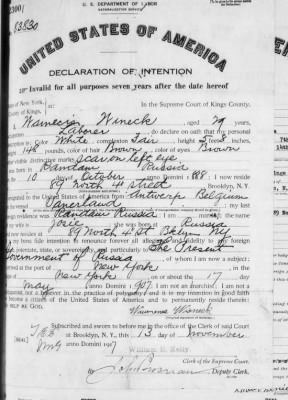 U. S. DEPARTMENT OF LABOR
NATURALIZATION SERVICE
UNITED STATES OF AMERICA
DECLARATION OF INTENTION
Invalid for all purposes seven years after the date hereof
of New York,
In the Supreme Court of Kings County,
County of Kings,
Wineck, aged 29 years,
occupation Laborer, do declare on oath that my personal
Color White, complexion Fair, height 5 feet 8 inches,
weight 148 pounds, color of hair Brown, color of eyes Brown
visible distinctive marks Scar on left eye
born in Russia
10 day of October, anno Domini 1888; I now reside
89 North 4th Street Brooklyn, N. Y.
emigrated to the United States of America from Antwerp Belgium
Vaderland; my last
residence was Russia; I am married; the name
she was born in Russia
89 North 4th St Bklyn
It is my bona fide intention to renounce forever all allegiance and fidelity to any foreign
potentate, state, or sovereignty, and particularly to The Present
Government of Russia, of whom I am now a subject;
arrived at the port of New York, in the
New York, on or about the 17 day
May, anno Domini 1907; I am not an anarchist; I am not a
polygamist nor a believer in the practice of polygamy; and it is my intention in good faith
to become a citizen of the United States of America and to permanently reside therein:
SO HELP ME GOD.
Subscribed and sworn to before me in the office of the Clerk of said Court
at Brooklyn, N. Y., this 13 day of November
anno Domini 191
William E. Kelly
Clerk of the Supreme Court.
By
Deputy Clerk.